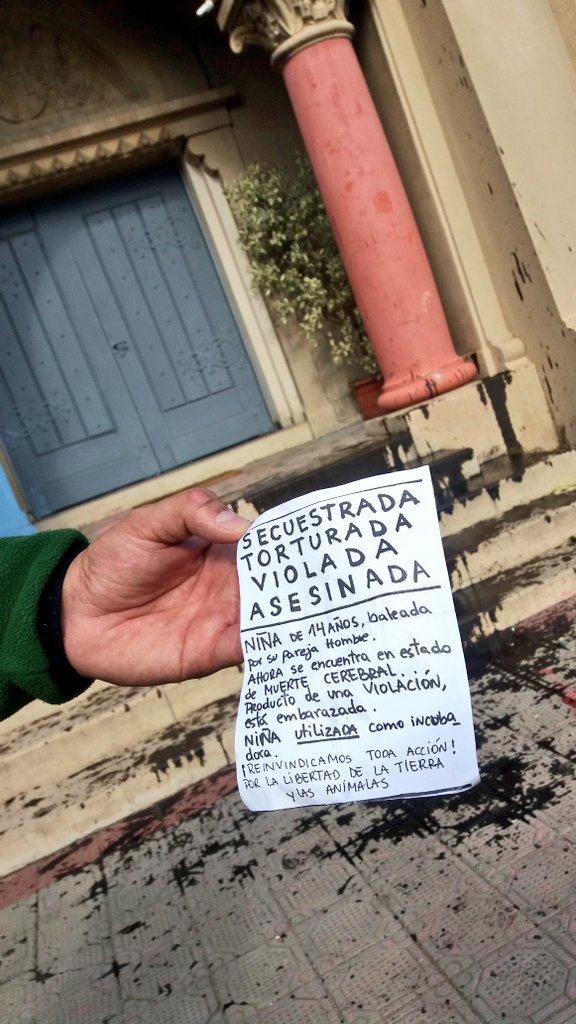 SECUESTRADA
TORTURADA
VIOLADA
ASESINADA
NIÑA DE 14 AÑOS, baleada
por su pareja Hombre.
AHORA se encuentra en estado
de MUERTE CEREBRAL...
Producto de una VIOLACIÓN,
está embarazada.
NIÑA UTILIZADA como incuba
dora.
¡REINVINDICAMOS TODA ACCIÓN!
POR LA LIBERTAD DE LA TIERRA
Y LAS ANÍMALAS